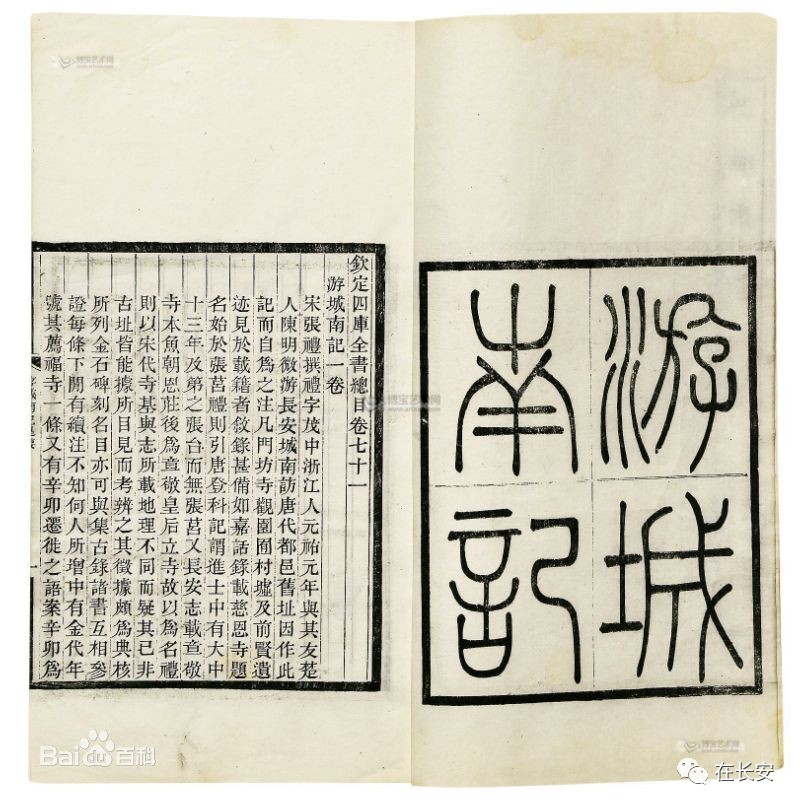 游城
南記
欽定四庫全書總目卷七十一
游城南記一卷
宋張禮撰禮字茂中浙江人元祐元年與其友楚
人陳明微游長安城南訪唐代都邑舊址因作此
記而自爲之注凡門坊寺觀園囿村墟及前賢遺
迹見於載籍者敘錄甚備如嘉話錄載慈恩寺題
名始於張莒禮則引唐登科記謂進士中有大中
十三年及第之張台而無張莒又長安志載章敬
寺本魚朝恩莊後爲章敬皇后立寺故以爲名禮
則以宋代寺基與志所載地理不同而疑其已非
古址皆能據所目見而考辨之其徵據頗爲典核
所列金石碑刻名目亦可與集古錄諸書互相參
證每條下閒有續注不知何人所增中有金代年
號其薦福寺一條又有辛卯遷徙之語案辛卯爲
一
博宝艺术网
博宝艺术网
博宝艺术网
Bai du 百科
在长安